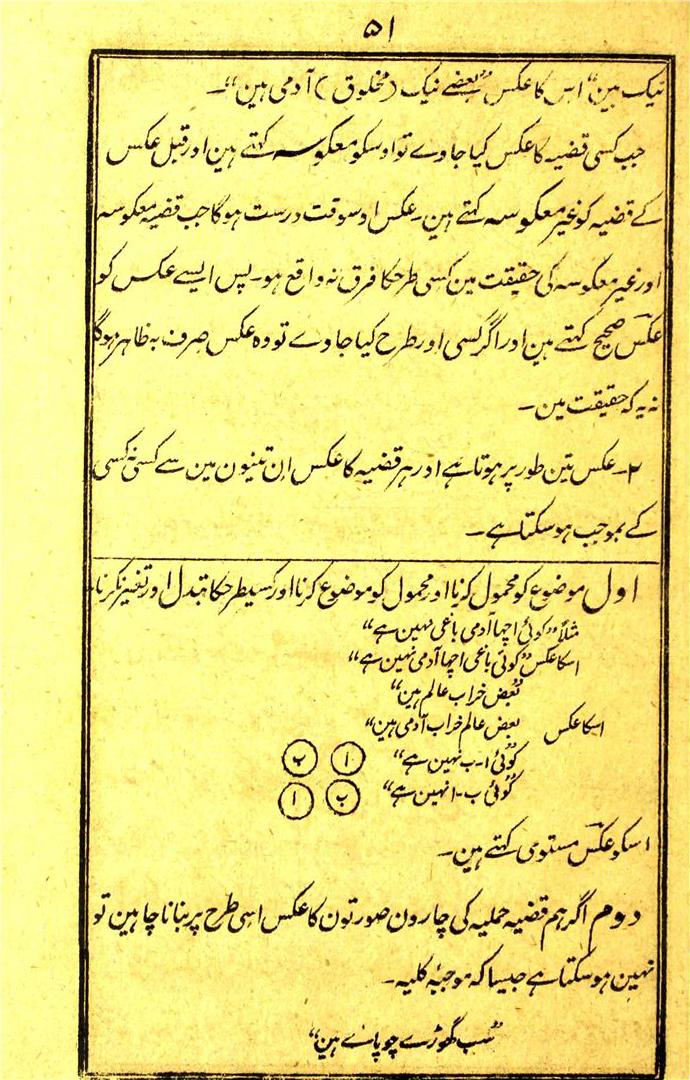 ۵۱
نیک ہین“ اس کا عکس ”بعضے نیک (مخلوق) آدمی ہین“۔
جب کسی قضیہ کا عکس کیا جاوے تو اوسکو معکوسہ کہتے ہین اور قبل عکس
کے قضیہ کو غیر معکوسہ کہتے ہین۔ عکس اوسوقت درست ہوگا جب قضیہ معکوسہ
اور غیر معکوسہ کی حقیقت مین کسی طرحکا فرق نہ واقع ہو۔ پس ایسے عکس کو
عکس صحیح کہتے ہین اور اگر کسی اور طرح کیا جاوے تو وہ عکس صرف بہ ظاہر ہوگا
نہ یہ کہ حقیقت مین۔
۲۔ عکس تین طور پر ہوتا ہے اور ہر قضیہ کا عکس ان تینون مین سے کسی نہ کسی
کے بموجب ہو سکتا ہے۔
اول موضوع کو محمول کرنا اور محمول کو موضوع کرنا اور کسیطرحکا تبدل اور تغیر نکرنا۔
مثلاً ”کوئی اچھا آدمی باغی نہین ہے“
اسکا عکس ”کوئی باغی اچھا آدمی نہین ہے“
”بعض خراب عالم ہین“
اسکا عکس بعض عالم خراب آدمی ہین“
”کوئی ا۔ب نہین ہے“ ا ب
”کوئی ب۔ا نہین ہے“ ب ا
اسکو عکس مستوی کہتے ہین۔
دوم اگر ہم قضیہ حملیہ کی چارون صورتون کا عکس اسی طرح پر بنانا چاہین تو
نہین ہو سکتا ہے جیسا کہ موجبہ کلیہ۔
”سب گھوڑے چوپائے ہین“